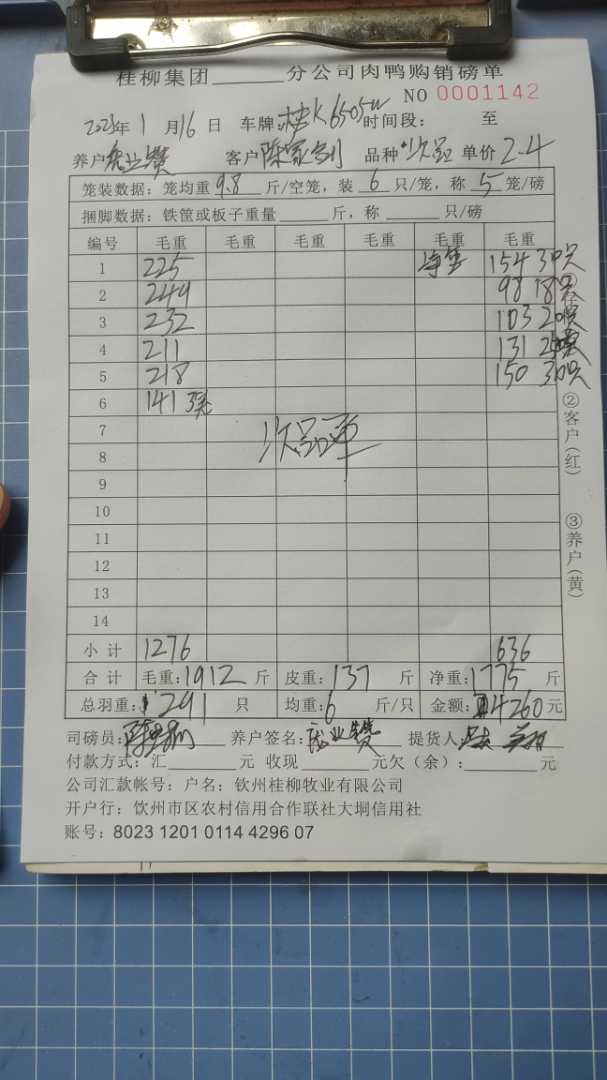 桂柳集团______分公司肉鸭购销磅单
NO 0001142
2023年 1 月 16 日 车牌: 桂K6505W 时间段: 至
养户 客户 陈家剑 品种 次品 单价 2.4
笼装数据: 笼均重 9.8 斤/空笼, 装 6 只/笼, 称 5 笼/磅
捆脚数据: 铁筐或板子重量______斤, 称______只/磅
编号 毛重 毛重 毛重 毛重 毛重 毛重
1 225 净重 154 30只
2 249 98 18只
3 232 103 20只
4 211 131
5 218 150 30只
6 141 3笼
7
8 次品单
9
10
11
12
13
14
小计 1276 636
合计 毛重: 1912 斤 皮重: 137 斤 净重: 1775 斤
总羽重: 291 只 均重: 6 斤/只 金额: 4260 元
司磅员: 养户签名: 业赞 提货人
付款方式: 汇______元 收现______元欠(余):______元
公司汇款帐号: 户名: 钦州桂柳牧业有限公司
开户行: 饮州市区农村信用合作联社大垌信用社
账号: 8023 1201 0114 4296 07
②客户(红)
③养户(黄)